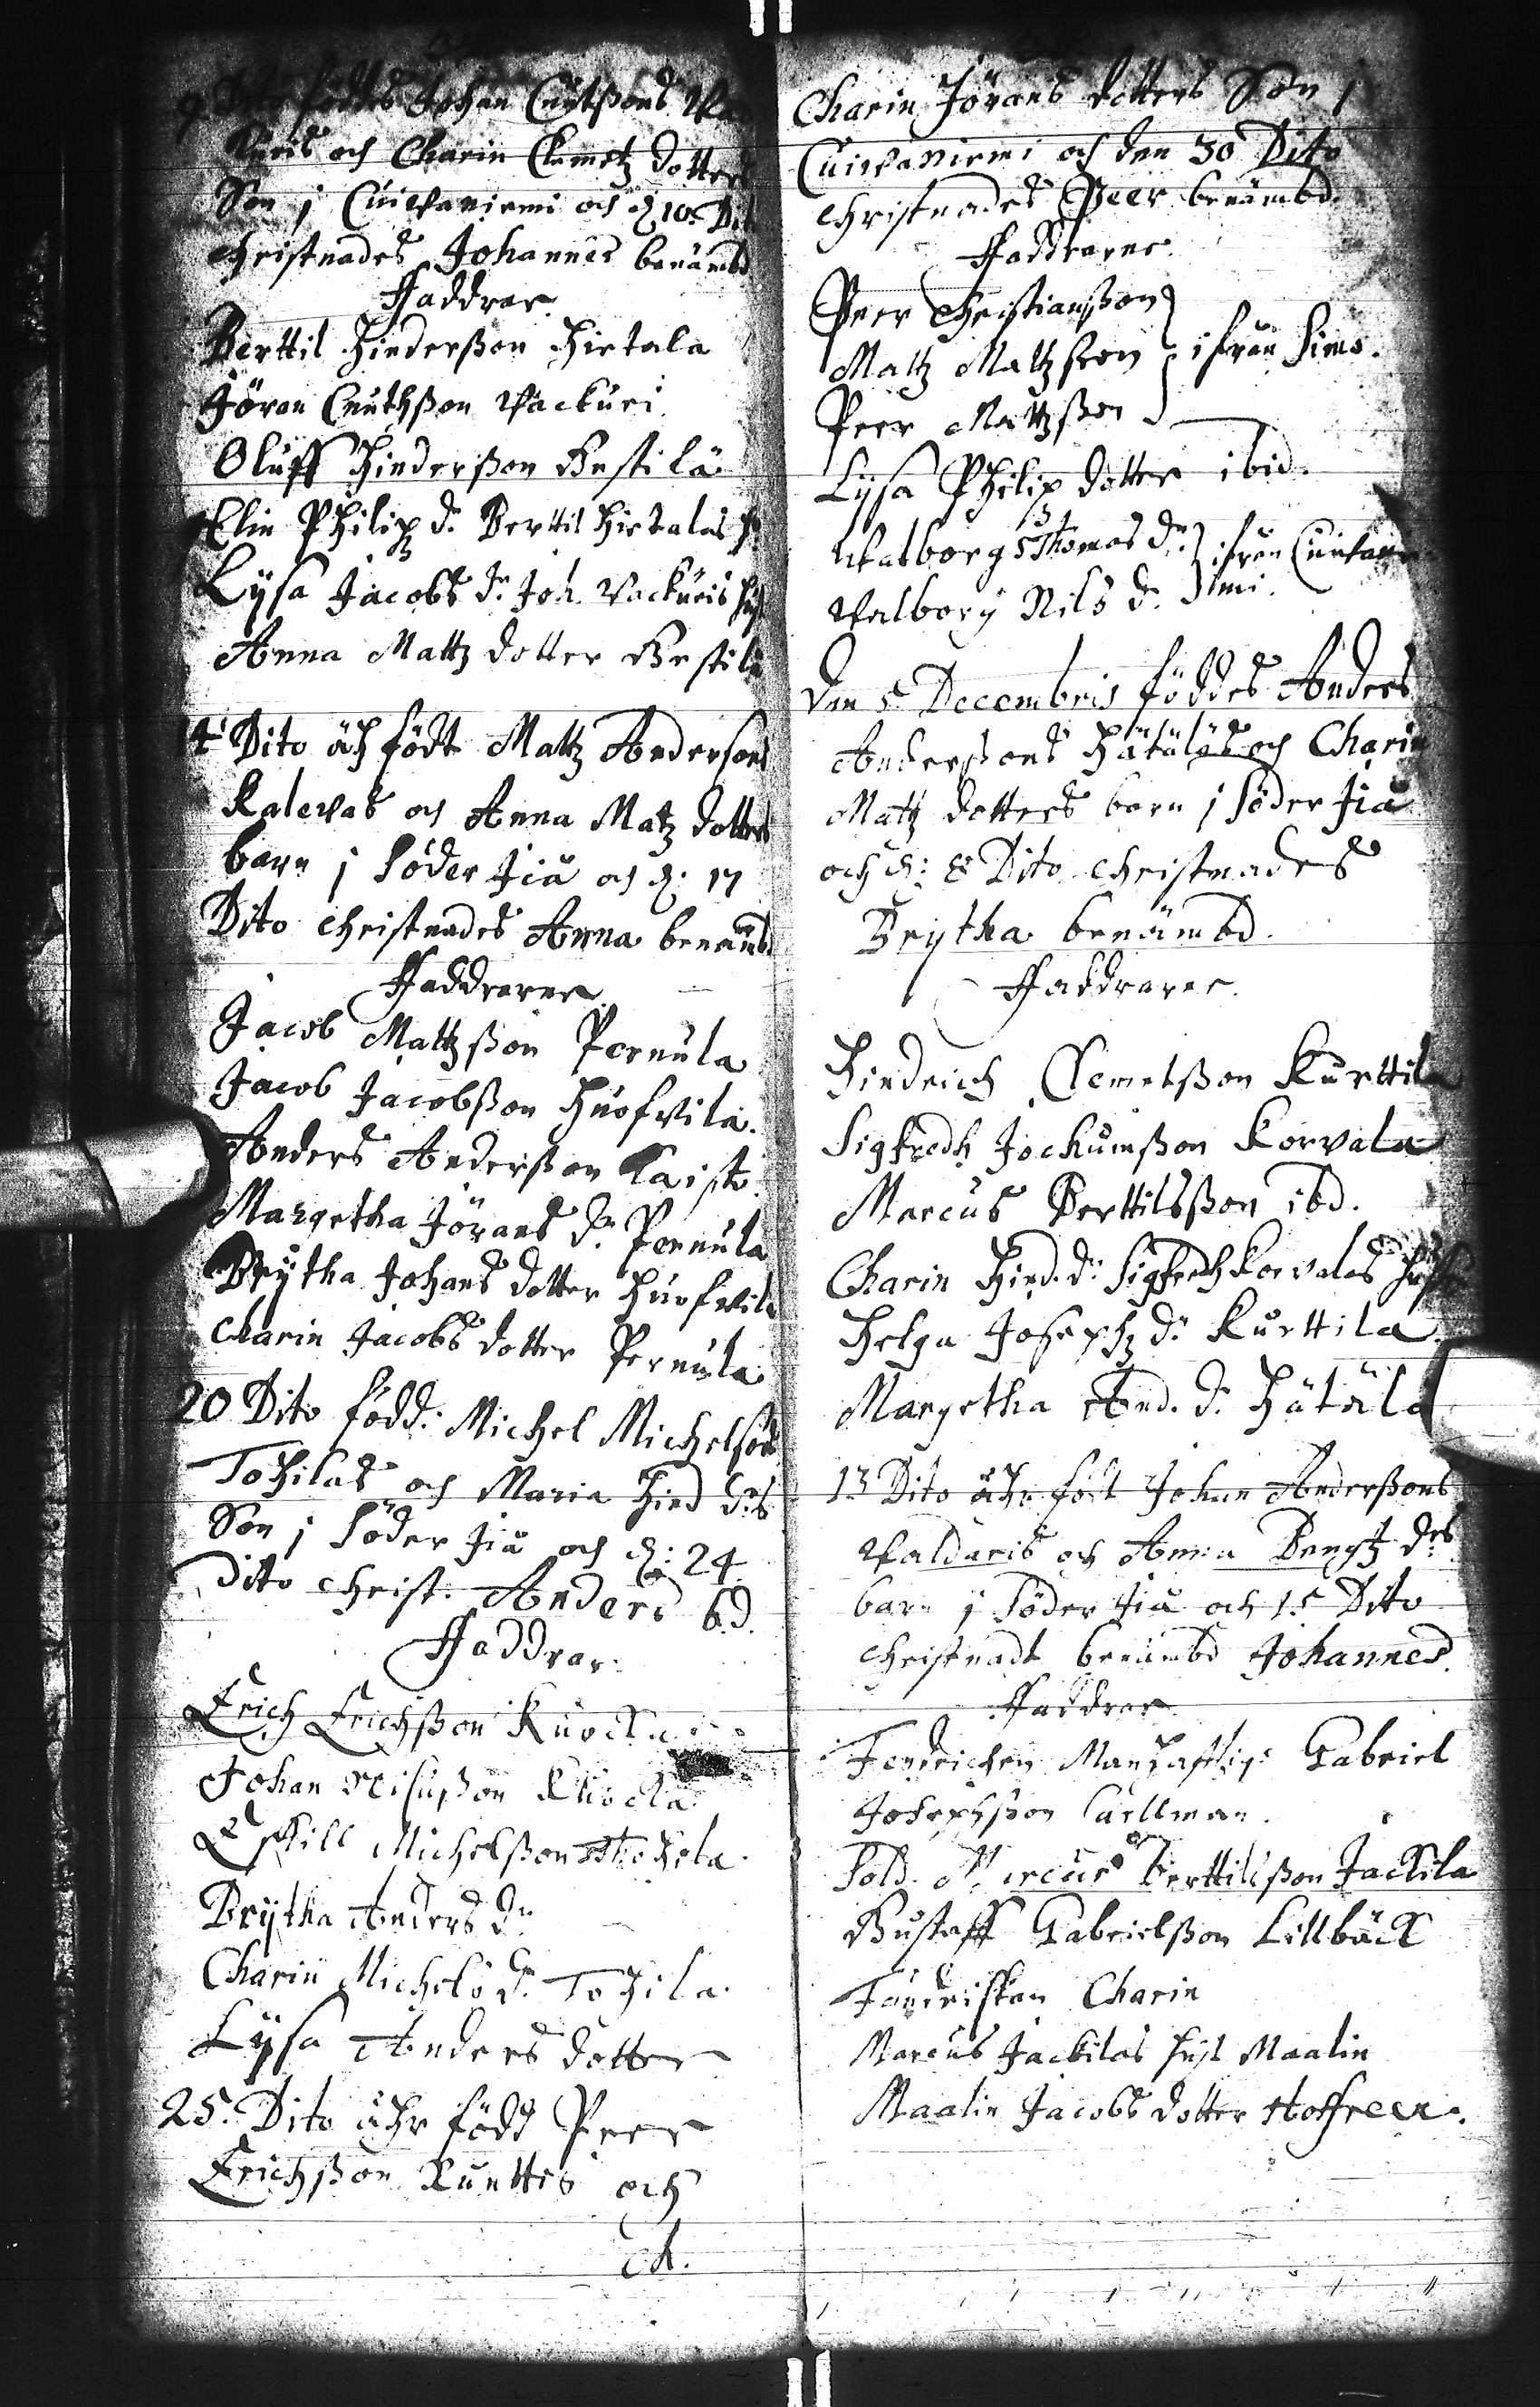 9 Dito föddes Johan Cnutßons Wac
kuris och Charin Clemetz dotters
Son j Cuivaniemi och d. 10 Dit
christnades Johannes benämbd
Faddrar
Berttil Hinderßon Hietala
Jöran Cnuthßon Wackuri
Oluff Hinderßon Bestilä
Elin Philipz d. Berttil Hietalas h
Lysa Jacobs dr Joh. Wackuris hust
Anna Mattz dotter Bestilä
14 Dito ähr födt Mattz Andersons
Kalevas och Anna Matz dotters
barn j Söder Jiå och d. 17
Dito christnades Anna benämbd
Faddrarna
Jacob Mattzßon Pernula
Jacob Jacobßon Huofvila.
Anders Anderßon Kaisto
Margetha Jörans dr Pernula
Brytha Johans dotter Huofvila
Charin Jacobs dotter Pernula
20 Dito född: Michel Michelsons
Tohilas och Maria Hind drs
Son j Söder Jiå och d: 24
Dito christ. Anders b.d.
Faddrar.
Erich Erichßon Kuocka
Johan Nilußon Kuocka
Eskill Michelßon Tohila
Brytha Anders dr
Charin Michels dr Tohila.
Lysa Anders dotter
25. Dito ähr född Peer
Erichßon Kunttis och
Ch.
Charin Jörans dotters Son j
Cuivaniemi och den 30 Dito
christnades Peer benämbd.
Faddrarne.
Peer Christianßon
Mattz Mattzßon } ifrån Simo.
Peer Mattzßon
Lysa Philips dotter ibid.
Walborg Thomas dr } ifrån Cuivanie
Valborg Nils d. } mi.
Den 5 Decembris föddes Anders
Anderßons Hätäläs och Charin
Mattz dotters barn j Söder Jiå
och d: 8 Dito christnades
Brytha benämbd.
Faddrarne.
Hindrich Clemetßon Kurttila
Sigfredh Jochumßon Korvala
Marcus Berttilsßon ibd.
Charin Hind. d: Sigfredh Korvalas hust
Helga Josephz dr Kurttila.
Margetha And. d. Hätälä
13 Dito ähr föd Johan Anderßons
Valdaris och Anna Bengtz drs
barn j Söder Jiå och 15 Dito
christnadt benämbd Johannes.
Faddrar
Fendrichen Manhafftig: Gabriel
Josephßon Carllman.
Sold. Marcus Berttilsßon Jackila
Gustaff Gabrielßon Lillbäck
Fändriskan Charin
Marcus Jackilas hust Maalin
Maalin Jacobs dotter Hoffreen.